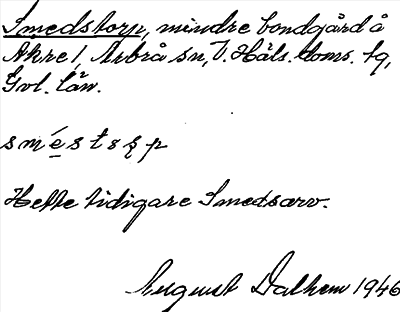 Smedstorp, mindre bondgård å
Åkre 1, Arbrå sn, V. Häls. doms. tq,
Gvl. län.
Hette tidigare Smedsarv.
August Dalhem 1946